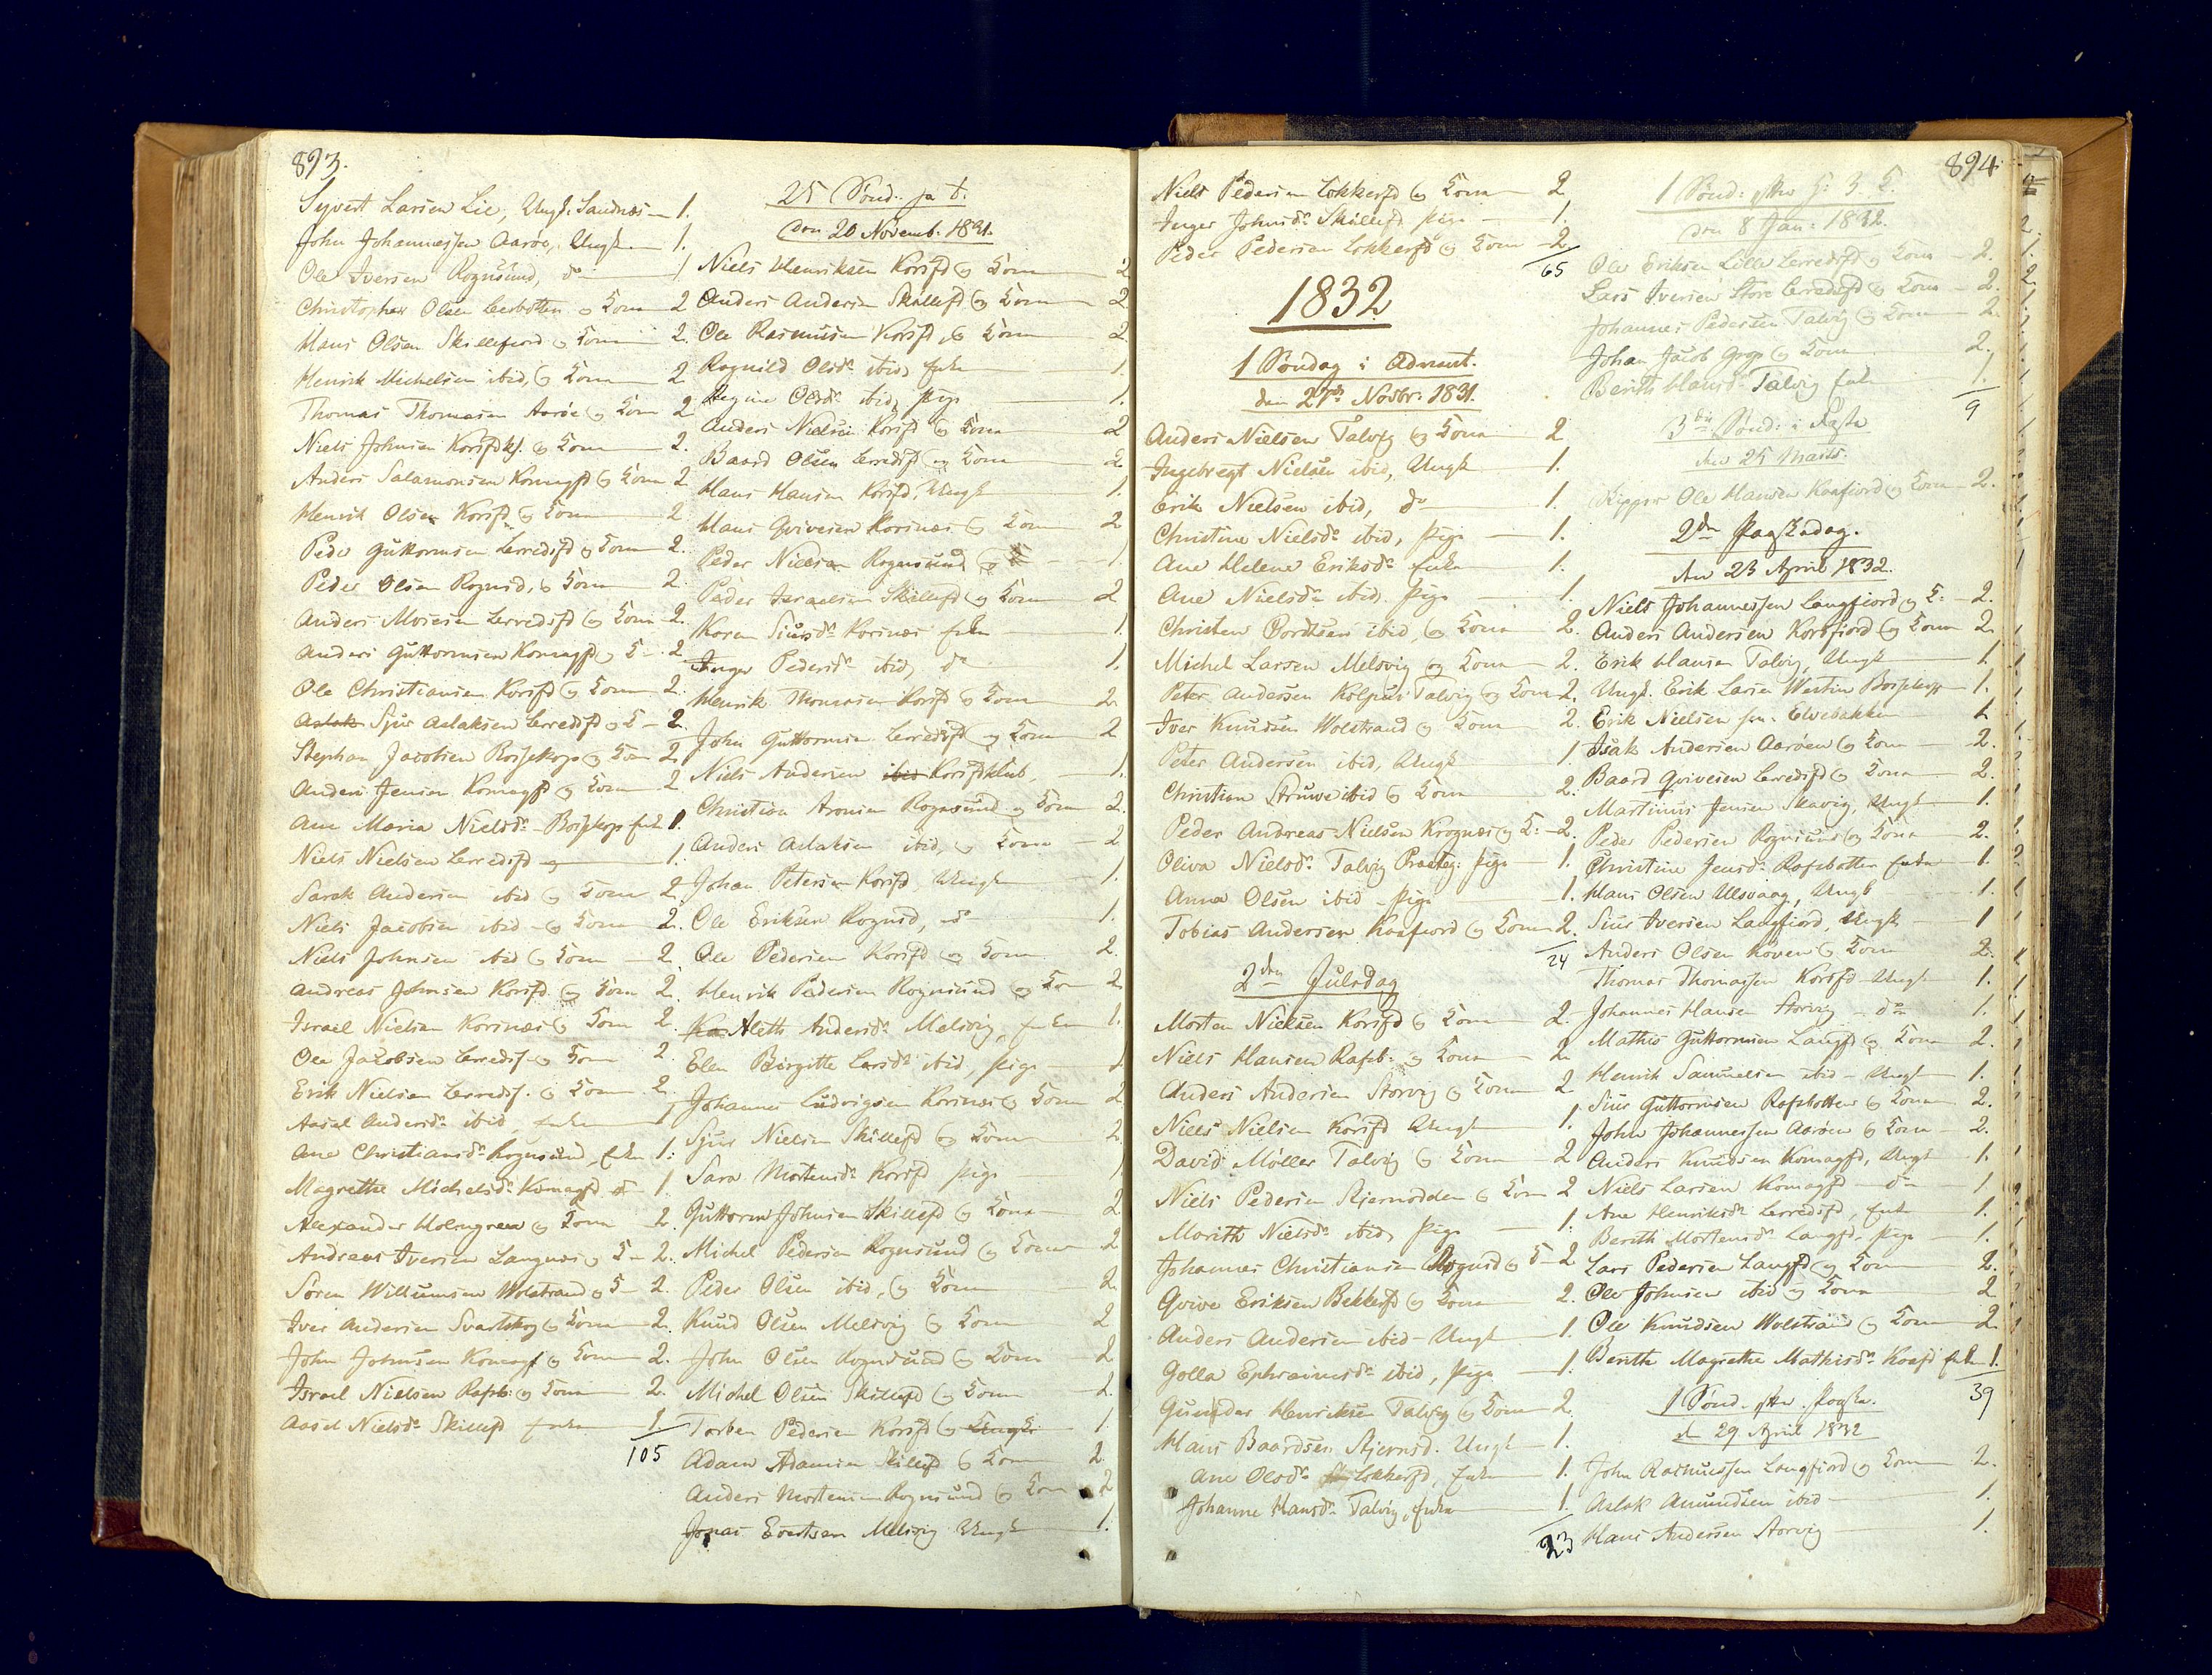 893.
Syvert Larsen Lie, Ungk. Sandnæs — 1.
John Johannessen Aarøe, Ungk. — 1.
Ole Iversen Rognsund, do — 1
Christopher Olsen Leerbotten og Kona 2
Hans Olsen Skillefiord og Kona 2.
Henrik Michelsen ibid, og Kona 2
Thomas Thomasen Aarøe og Kona 2
Niels Johnsen Korsfdkl. og Kona — 2.
Anders Salamonsen Komagfd og Kona 2
Henrik Olsen Korsfd og Kona — 2
Peder Guttormsen Lerredsfd og Kona — 2.
Peder Olsen Rognsd, og Kona — 2.
Anders Mosesen Lerredsfd og Kona — 2.
Anders Guttormsen Komagfd og K — 2
Ole Christiansen Korsfd og Kona — 2.
Aslak Sjur Aslaksen Lerredsfd og K — 2.
Stephan Jacobsen Bossekop og Kona 2
Anders Jensen Komagfd og Kona — 2
Ane Maria Nielsdr Bossekop Enke 1.
Niels Nielsen Lerredsfd og — 1.
Sarak Andersen ibid og Kona 2
Niels Jacobsen ibid — og Kona — 2.
Niels Johnsen ibid og Kona — 2.
Andreas Johnsen Korsfd. og Kona 2.
Israel Nielsen Korsnæs og Kona 2.
Ole Jacobsen Lerredsf. og Kona 2.
Erik Nielsen Lerredsf. og Kona 2.
Aasel Andersdr ibid, Enke — 1
Ane Christiansdr Rognsund, Enke 1.
Magrethe Michelsdr Komagfd do 1.
Alexander Holmgreen og Kona — 2.
Andreas Iversen Langnæs og K — 2.
Søren Willumsen Wolstrand og K — 2.
Iver Andersen Svartskog og Kona — 2.
John Johnsen Komagf og Kona — 2.
Israel Nielsen Rafsb. og Kona — 2.
Aasel Nielsdr Skillefd Enke — 1
105
25 Sønd. p. t.
den 20 Novemb. 1831.
Niels Henriksen Korsfd og Kona — 2
Anders Andersen Skillefd og Kona — 2
Ole Rasmusen Korsfd, og Kona — 2
Ragnild Olsdr ibid, Enke — 1.
Regine Olsdr ibid, Pige — 1.
Anders Nielsen Korsfd og Kona — 2
Baard Olsen Lerredsf og Kona — 2.
Hans Hansen Korsfd, Ungk — 1.
Hans Qvivesen Korsnæs og Kona — 2
Peder Nielsen Rognsund og K — 1.
Peder Israelsen Skillefd og Kona — 2
Karen Siursdr Korsnæs Enke — 1.
Inger Pedersdr ibid, do — 1.
Henrik Thomasen Korsfd og Kona — 2.
John Guttormsen Lerredsfd og Kona — 2
Niels Andersen ibid Korsfdklub. — 1.
Christian Aronsen Rognsund og Kona 2.
Anders Aslaksen ibid, og Kona — 2
Johan Petersen Korsfd, Ungk — 1.
Ole Eriksen Rognsd, do — 1.
Ole Pedersen Korsfd og Kona — 2.
Henrik Pedersen Rognsund og Kona — 2.
Ka Aleth Andersdr Melsvig, Enke 1.
Elen Birgitte Larsdr ibid, Pige — 1
Johannes Ludvigsen Korsnæs og Kona 2
Sjur Nielsen Skillefd og Kona — 2.
Sara Mortensdr Korsfd Pige — 1
Guttorm Johnsen Skillefd og Kona — 2
Michel Pedersen Rognsund og Kona 2
Peder Olsen ibid, og Kona — 2.
Knud Olsen Melsvig og Kona — 2
John Olsen Rognsund og Kona — 2
Michel Olsen Skillefd og Kona — 2.
Torben Pedersen Korsfd og Ungk — 1.
Adam Adamsen Skillefd og Kona — 2.
Anders Mortensen Rognsund og Kona 2
Jonas Evertsen Melsvig Ungk — 1.
894.
Niels Pedersen Lokkerfd og Kona — 2
Inger Johnsdr Skillefd Pige — 1.
Peder Pedersen Lokkerfd og Kona — 2.
65
1832
1 Søndag i Advent.
den 27de Novbr. 1831.
Anders Nielsen Talvig og Kona — 2
Ingebregt Nielsen ibid, Ungk — 1.
Erik Nielsen ibid, do — 1.
Christine Nielsdr ibid, Pige — 1.
Ane Helene Eriksdr Enke — 1.
Ane Nielsdr ibid. Pige — 1.
Christen Bordtsen ibid, og Kona — 2.
Michel Larsen Melsvig og Kona — 2.
Peter Andersen Kolpus Talvig og Kona 2.
Iver Knudsen Wolstrand og Kona — 2.
Peter Andersen ibid, Ungk — 1.
Christian Struwe ibid og Kona — 2.
Peder Andreas Nielsen Krognæs og K. — 2.
Oliva Nielsdr Talvig Præsteg. Pige — 1.
Anna Olsen ibid — Pige — 1.
Tobias Andersen Kaafiord og Kona 2.
24
2den Juledag
Morten Nielsen Korsfd og Kona — 2.
Niels Hansen Rafsb. og Kona — 2
Anders Andersen Storvig og Kona 2
Niels Nielsen Korsfd Ungk — 1.
David Møller Talvig og Kona — 2
Niels Pedersen Stjernodden og Kona 2
Marith Nielsdr ibid, Pige — 1.
Johannes Christiansen Rognsd og K — 2
Qvive Eriksen Bekkerfd og Kona — 2.
Anders Andersen ibid — Ungk — 1.
Golla Ephraimsdr ibid, Pige — 1.
Gunder Henriksen Talvig og Kona 2
Hans Baardsen Stjernsd. Ungk — 1.
Ane Olsdr Lokkerfd, Enke — 1.
Johanne Hansdr Talvig, Enke — 1.
23
1 Sønd. efter H: 3 K.
den 8 Jan: 1832.
Ole Eriksen Lille Lerredsfd og Kona — 2.
Lars Iversen Store Lerredsfd og Kona — 2.
Johannes Pedersen Talvig og Kona — 2
Johan Jacob Grop og Kona — 2.
Berith Hansdr Talvig Enke — 1.
9
3die Sønd: i Faste
den 25 Marts.
Skipper Ole Hansen Kaafiord og Kona — 2.
2den Paaskedag.
den 23 April 1832.
Niels Johannessen Langfiord og K. — 2.
Anders Andersen Korsfiord og Kona 2.
Erik Hansen Talvig, Ungk — 1.
Ungk. Erik Larsen Westin Bossekop 1.
Erik Nielsen sen. Elvebakken — 1
Isak Andersen Aarøen og Kona — 2.
Baard Qvivesen Lerredsfd og Kona — 2.
Martinus Jensen Skavig, Ungk. — 1.
Peder Pedersen Rognsund og Kona — 2.
Christine Jensdr Rafsbotten Enke — 1.
Hans Olsen Ulsvaag, Ungk — 1.
Siur Iversen Langfiord, Ungk — 1
Anders Olsen Koven og Kona — 2.
Thomas Thomassen Korsfd Ungk 1.
Johannes Hansen Storvig — do — 1.
Mathis Guttormsen Langfd og Kona 2.
Henrik Samuelsen ibid — Ungk — 1.
Siur Guttormsen Rafsbotten og Kona 2.
John Johannessen Aarøen og Kona — 2.
Anders Knudsen Komagfd, Ungk 1.
Niels Larsen Komagfd — do — 1
Ane Henriksdr Lerredsfd, Enke — 1.
Berith Mortensdr Langfd, Pige — 1.
Lars Pedersen Langfd og Kona — 2.
Ole Johnsen ibid og Kona — 2
Ole Knudsen Wolstrand og Kona — 2.
Berithe Magrethe Mathisdr Kaafd Enke 1.
39
1 Sønd. efter Paaske.
d. 29 April 1832
John Rasmussen Langfiord og Kona — 2.
Aslak Amundsen ibid — 1.
Hans Andersen Storvig — 1.